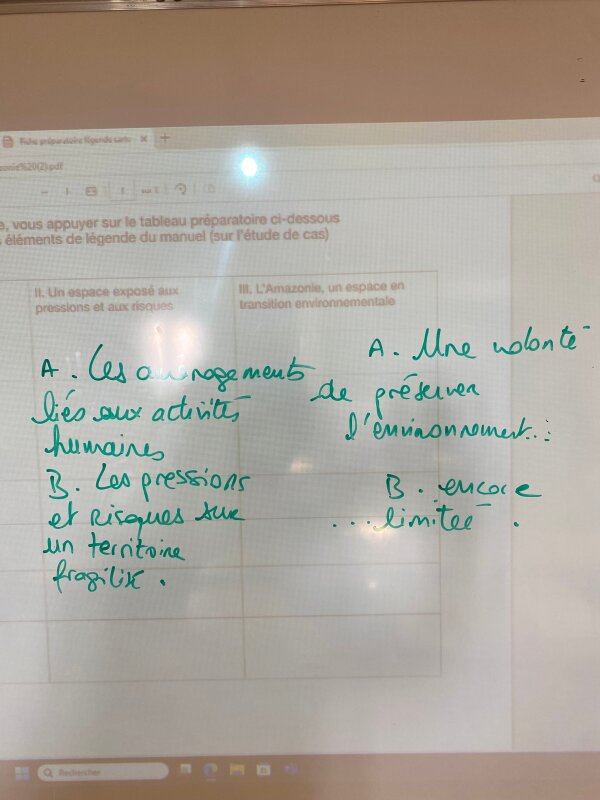 Fiche préparatoire légende carto
%20(2).pdf
e, vous appuyer sur le tableau préparatoire ci-dessous
éléments de légende du manuel (sur l'étude de cas)
II. Un espace exposé aux
pressions et aux risques
III. L'Amazonie, un espace en
transition environnementale
A. Les aménagements
liés aux activités
humaines
B. Les pressions
et Risques sur
un territoire
fragilisé.
A. Une volonté
de préserver
l'environnement...
B. encore
... limitée.
Rechercher